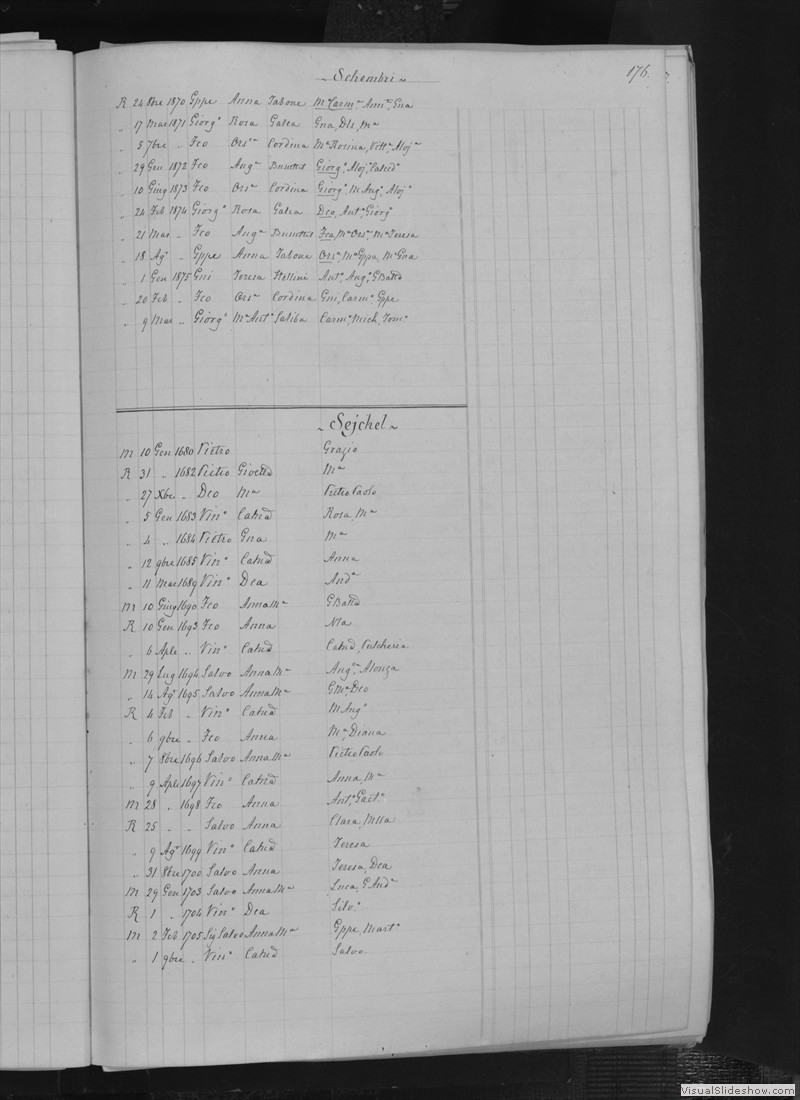 176.
Schembri
R 24 8bre 1870 Gppe Anna Tabone Mª Carmª Annª Gna
" 17 Mar 1871 Giorgº Rosa Galea Gna, Dls, Mª
" 5 7bre " Fco Orsª Cordina Mª Rosina, Vittª, Alojª
" 29 Gen 1872 Fco Angª Busuttil Giorgº, Aloj, Catnd
" 10 Giug 1873 Fco Orsª Cordina Giorgº, M Angº, Alojº
" 24 Feb 1874 Giorgº Rosa Galea Dco, Antº, Giorgº
" 21 Mar " Fco Angª Busuttil Fca, Mª Orsª, Mª Teresa
" 18 Agº " Gppe Anna Tabone Orsª, Mª Gppa, Mª Gna
" 1 Gen 1875 Gni Teresa Stellini Antº, Angº, GBatta
" 20 Feb " Fco Orsª Cordina Gni, Carmº, Gppe
" 9 Mar " Giorgº Mª Antª Saliba Carmº, Mich, Tomº
Sejchel
M 10 Gen 1680 Pietro Grazio
R 31 " 1682 Pietro Mª
" 27 Xbre " Dco Mª Pietro Paolo
" 5 Gen 1683 Vinº Catnd Rosa, Mª
" 4 " 1684 Pietro Gna Mª
" 12 9bre 1685 Vinº Catnd Anna
" 11 Mar 1689 Vinº Dea Andª
M 10 Giug 1690 Fco Anna Mª GBatta
R 10 Gen 1693 Fco Anna Nla
" 6 Aple " Vinº Catnd Catnd, Pulcheria
M 29 Lug 1694 Salvo Anna Mª Angª, Alonza
" 14 Agº 1695 Salvo Anna Mª G Mª, Dco
R 4 Feb " Vinº Catnd M Angº
" 6 9bre " Fco Anna Mª, Diana
" 7 8bre 1696 Salvo Anna Mª Pietro Paolo
" 9 Aple 1697 Vinº Catnd Anna, Mª
M 28 " 1698 Fco Anna Antº, Gaetº
R 25 " " Salvo Anna Clara, Mlla
" 9 Agº 1699 Vinº Catnd Teresa
" 31 8bre 1700 Salvo Anna Teresa, Dea
M 29 Gen 1703 Salvo Anna Mª Luca, G Andª
R 1 " 1704 Vinº Dea Silvº
M 2 Feb 1705 Sig Salvo Anna Mª Gppe, Martº
" 1 9bre " Vinº Catnd Salvo
VisualSlideshow.com